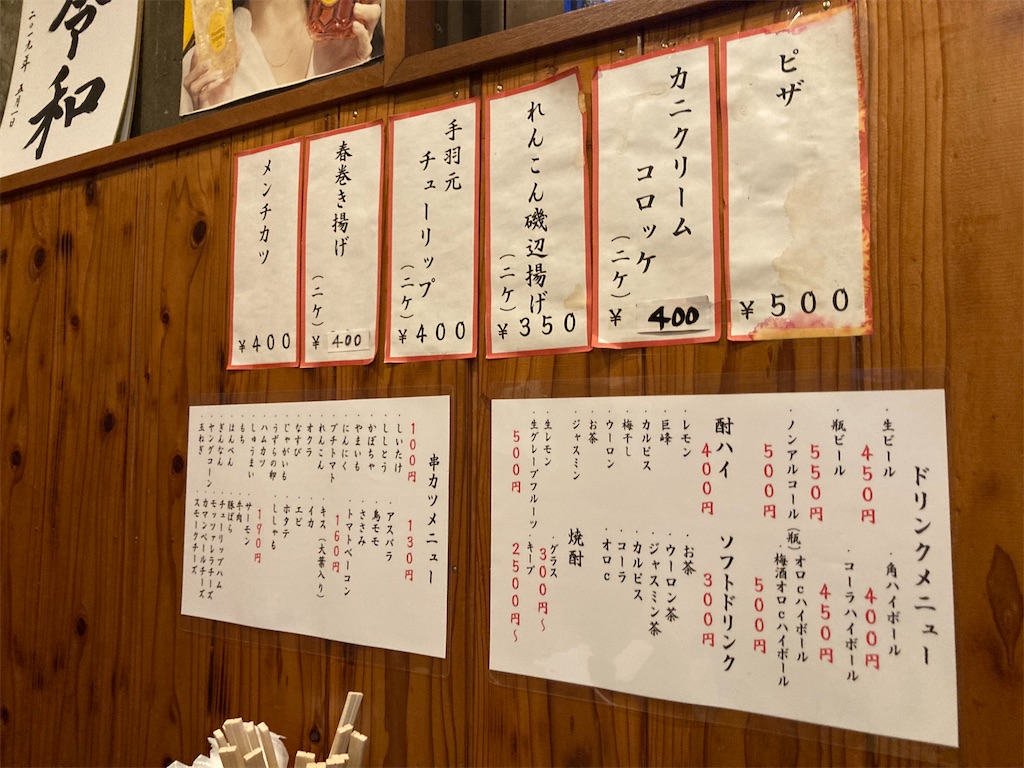 令和
二〇一九年 五月一日
ピザ
¥500
カニクリーム
コロッケ
(二ケ)
¥400
れんこん磯辺揚げ
(二ケ)
¥350
手羽元
チューリップ
(二ケ)
¥400
春巻き揚げ
(二ケ)
¥400
メンチカツ
¥400
ドリンクメニュー
・生ビール
450円
・瓶ビール
550円
・ノンアルコール(瓶)
500円
・角ハイボール
400円
・コーラハイボール
450円
オロcハイボール
・梅酒オロcハイボール
500円
酎ハイ
400円
・レモン
・巨峰
・カルピス
・梅干し
・ウーロン
・お茶
・ジャスミン
・生レモン
・生グレープフルーツ
500円
ソフトドリンク
300円
・お茶
・ウーロン茶
・ジャスミン茶
・カルピス
・コーラ
・オロc
焼酎
・グラス
300円～
・キープ
2500円～
串カツメニュー
100円
・しいたけ
・ししとう
・かぼちゃ
・やまいも
・にんにく
・プチトマト
・れんこん
・オクラ
・なすび
・じゃがいも
・うずらの卵
・ハムカツ
・しゅうまい
・もち
・はんぺん
・ぎんなん
・ヤングコーン
・玉ねぎ
130円
・アスパラ
・鳥モモ
・ささみ
・トマトベーコン
160円
・キス(大葉入り)
・イカ
・エビ
・ホタテ
・ししゃも
190円
・サーモン
・牛肉
・豚ばら
・チューリップハム
・モッツァレラチーズ
・カマンベールチーズ
・スモークチーズ